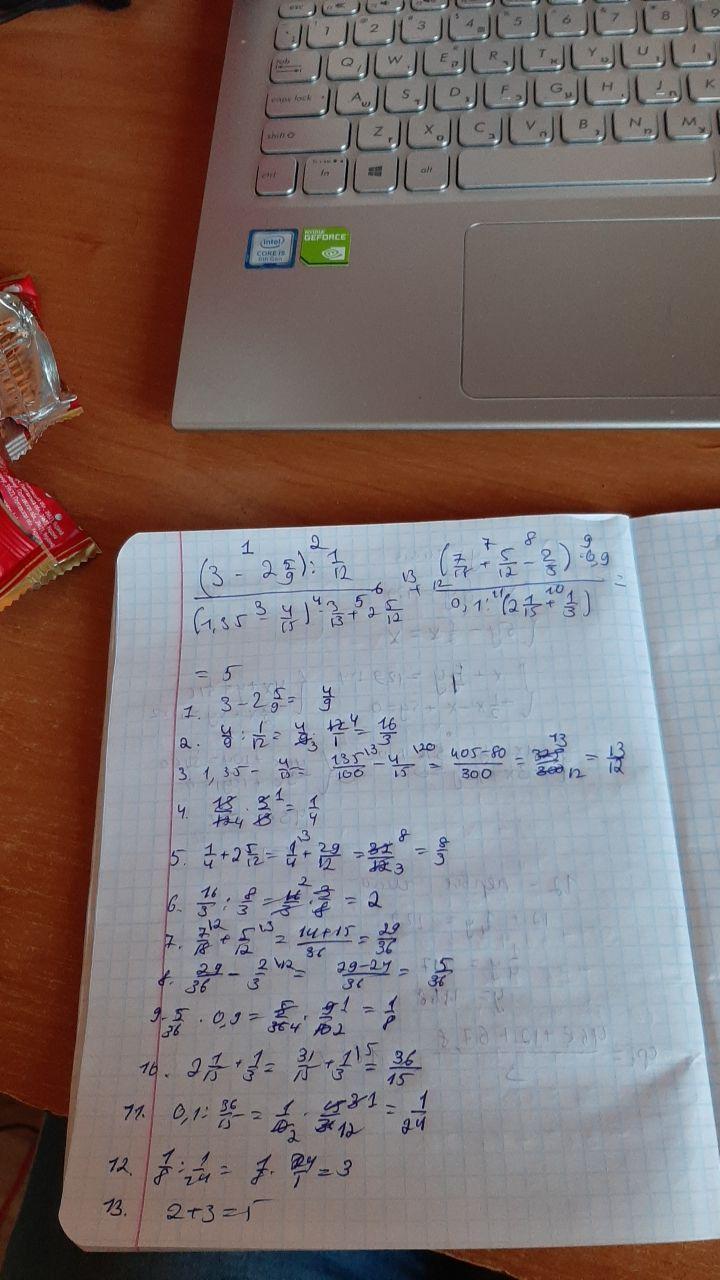 esc
1 2 3 4 5 6 7 8 9
tab Q W E R T Y U I
caps lock A S D F G H J K
shift Z X C V B N M
ctrl fn alt
intel CORE i5 8th Gen
NVIDIA GEFORCE
(3 - 2 5/9) : 1/12 / (1,35 - 4/15) · 3/13 + 2 5/12 + (7/18 + 5/12 - 2/3) · 0,9 / 0,1 : (2 1/15 + 1/3) =
= 5
1. 3 - 2 5/9 = 4/9
2. 4/9 : 1/12 = 4/9 · 12/1 = 16/3
3. 1,35 - 4/15 = 135/100 - 4/15 = 405-80/300 = 325/300 = 13/12
4. 13/12 · 3/13 = 1/4
5. 1/4 + 2 5/12 = 1/4 + 29/12 = 32/12 = 8/3
6. 16/3 : 8/3 = 16/3 · 3/8 = 2
7. 7/18 + 5/12 = 14+15/36 = 29/36
8. 29/36 - 2/3 = 29-24/36 = 5/36
9. 5/36 · 0,9 = 5/36 · 9/10 = 1/8
10. 2 1/15 + 1/3 = 31/15 + 1/3 = 36/15
11. 0,1 : 36/15 = 1/10 · 15/36 = 1/24
12. 1/8 : 1/24 = 1/8 · 24/1 = 3
13. 2 + 3 = 5